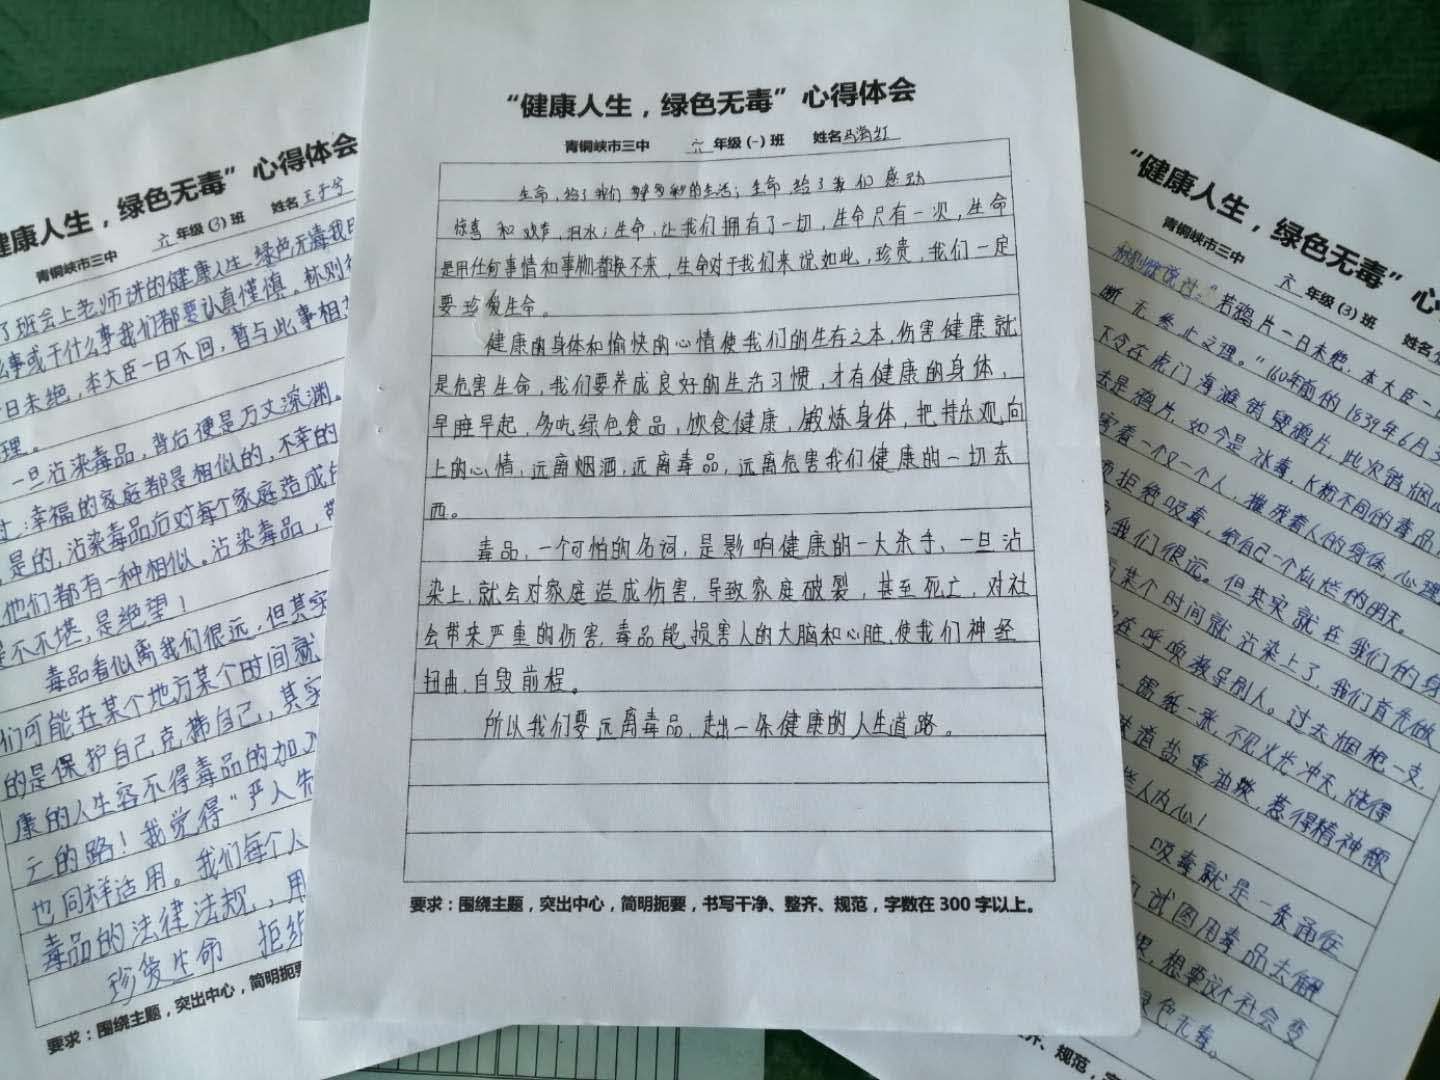 健康人生，绿色无毒”心得体会
青铜峡市三中 六年级(3)班 姓名王子兮
了班会上老师讲的健康人生，绿色无毒我
么事或干什么事我们都要认真谨慎，林则
日未绝，本大臣一日不回，暂与此事相
理。
一旦沾染毒品，背后便是万丈深渊。
过：幸福的家庭都是相似的，不幸的
，是的，沾染毒品后对每个家庭造成
他们都有一种相似。沾染毒品，
是不堪，是绝望！
毒品看似离我们很远，但其实
们可能在某个地方某个时间就
的是保护自己克制自己，其实
康的人生容不得毒品的加入
亡的路！我觉得“严入
也同样适用。我们每个人
毒品的法律法规，用
珍爱生命 拒绝
要求：围绕主题，突出中心，简明扼要
“健康人生，绿色无毒”心得体会
青铜峡市三中 六年级(一)班 姓名马海红
生命，给了我们的生活；生命，给了我们感动
惊喜和欢声，泪水；生命，让我们拥有了一切，生命只有一次，生命
是用任何事情和事物都换不来，生命对于我们来说如此，珍贵，我们一定
要珍爱生命。
健康的身体和愉快的心情使我们的生存之本，伤害健康就
是危害生命，我们要养成良好的生活习惯，才有健康的身体，
早睡早起，多吃绿色食品，饮食健康，锻炼身体，把持乐观，向
上的心情，远离烟酒，远离毒品，远离危害我们健康的一切东
西。
毒品，一个可怕的名词，是影响健康的一大杀手、一旦沾
染上，就会对家庭造成伤害，导致家庭破裂，甚至死亡，对社
会带来严重的伤害，毒品能损害人的大脑和心脏，使我们神经
扭曲，自毁前程。
所以我们要远离毒品，走出一条健康的人生道路。
要求：围绕主题，突出中心，简明扼要，书写干净、整齐、规范，字数在300字以上。
“健康人生，绿色无毒”心
青铜峡市三中 六年级(3)班 姓名
林则徐说过：“若鸦片一日未绝，本大臣一日
断无终止之理。”160年前的1839年6月3
下令在虎门海滩销毁鸦片，此次销烟
去是鸦片，如今是冰毒，K粉不同的毒品
害着一个又一个人，摧残着人的身体，心理
要拒绝吸毒，给自己一个灿烂的明天。
离我们很远。但其实就在我们的身
某个时间就沾染上了，我们首先做
在呼唤救导别人。过去烟枪一支
锡纸一张，不见火光冲天，烧得
味道盐重油微，惹得精神颓
些人内心！
吸毒就是一条通往
试图用毒品去解
想要这个社会变
绿色无毒。
齐、规范，字